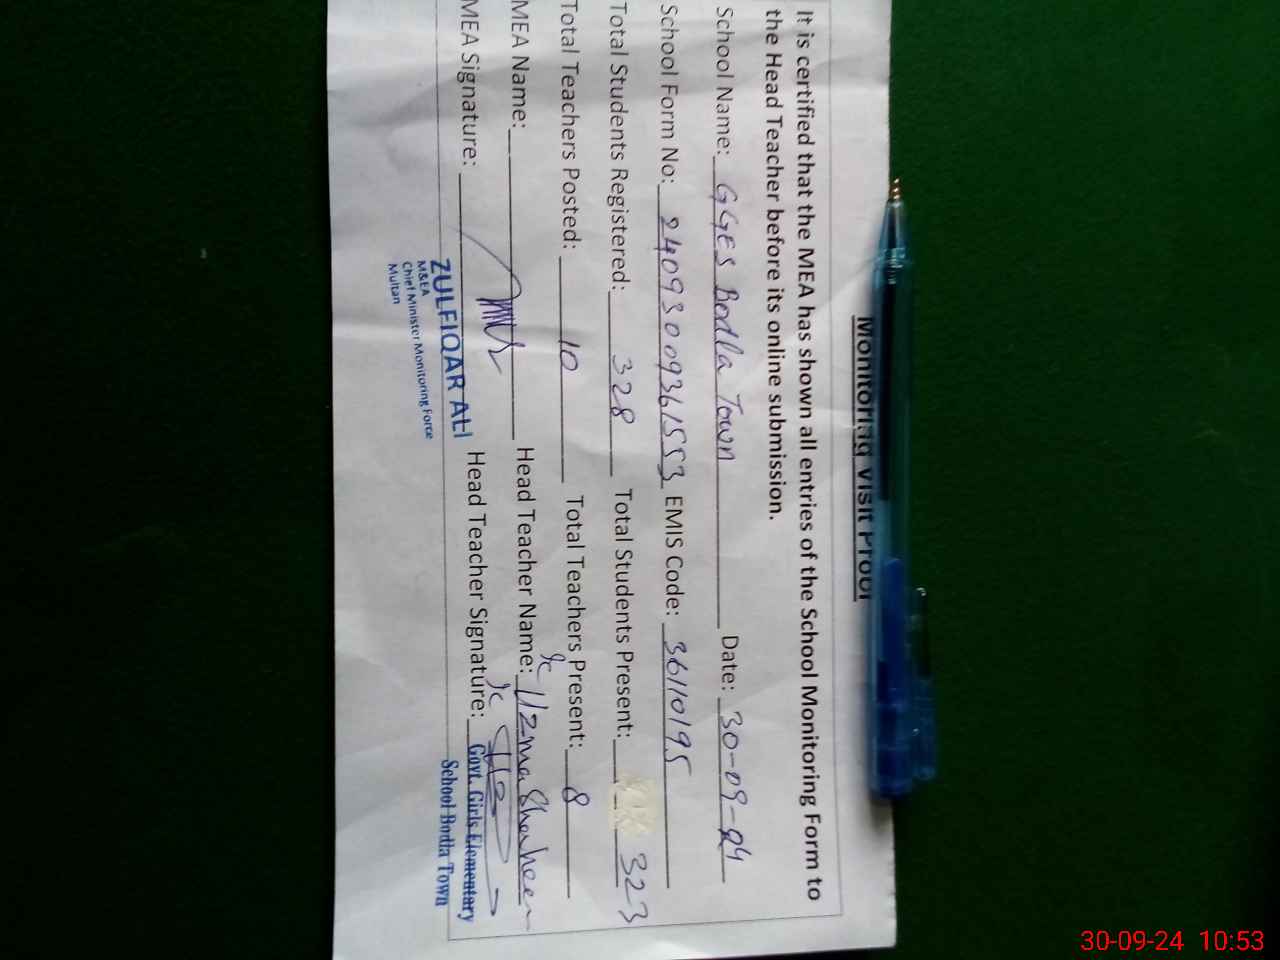 Monitoring Visit Proof
It is certified that the MEA has shown all entries of the School Monitoring Form to
the Head Teacher before its online submission.
School Name: GGES Bodla Town Date: 30-09-24
School Form No: 24093009361553 EMIS Code: 36110195
Total Students Registered: 328 Total Students Present: 323
Total Teachers Posted: 10 Total Teachers Present: 8
MEA Name: Head Teacher Name: Uzma Shaheen
MEA Signature: Head Teacher Signature:
ZULFIQAR ALI
M&EA
Chief Minister Monitoring Force
Multan
Govt. Girls Elementary
School Bodla Town
30-09-24 10:53